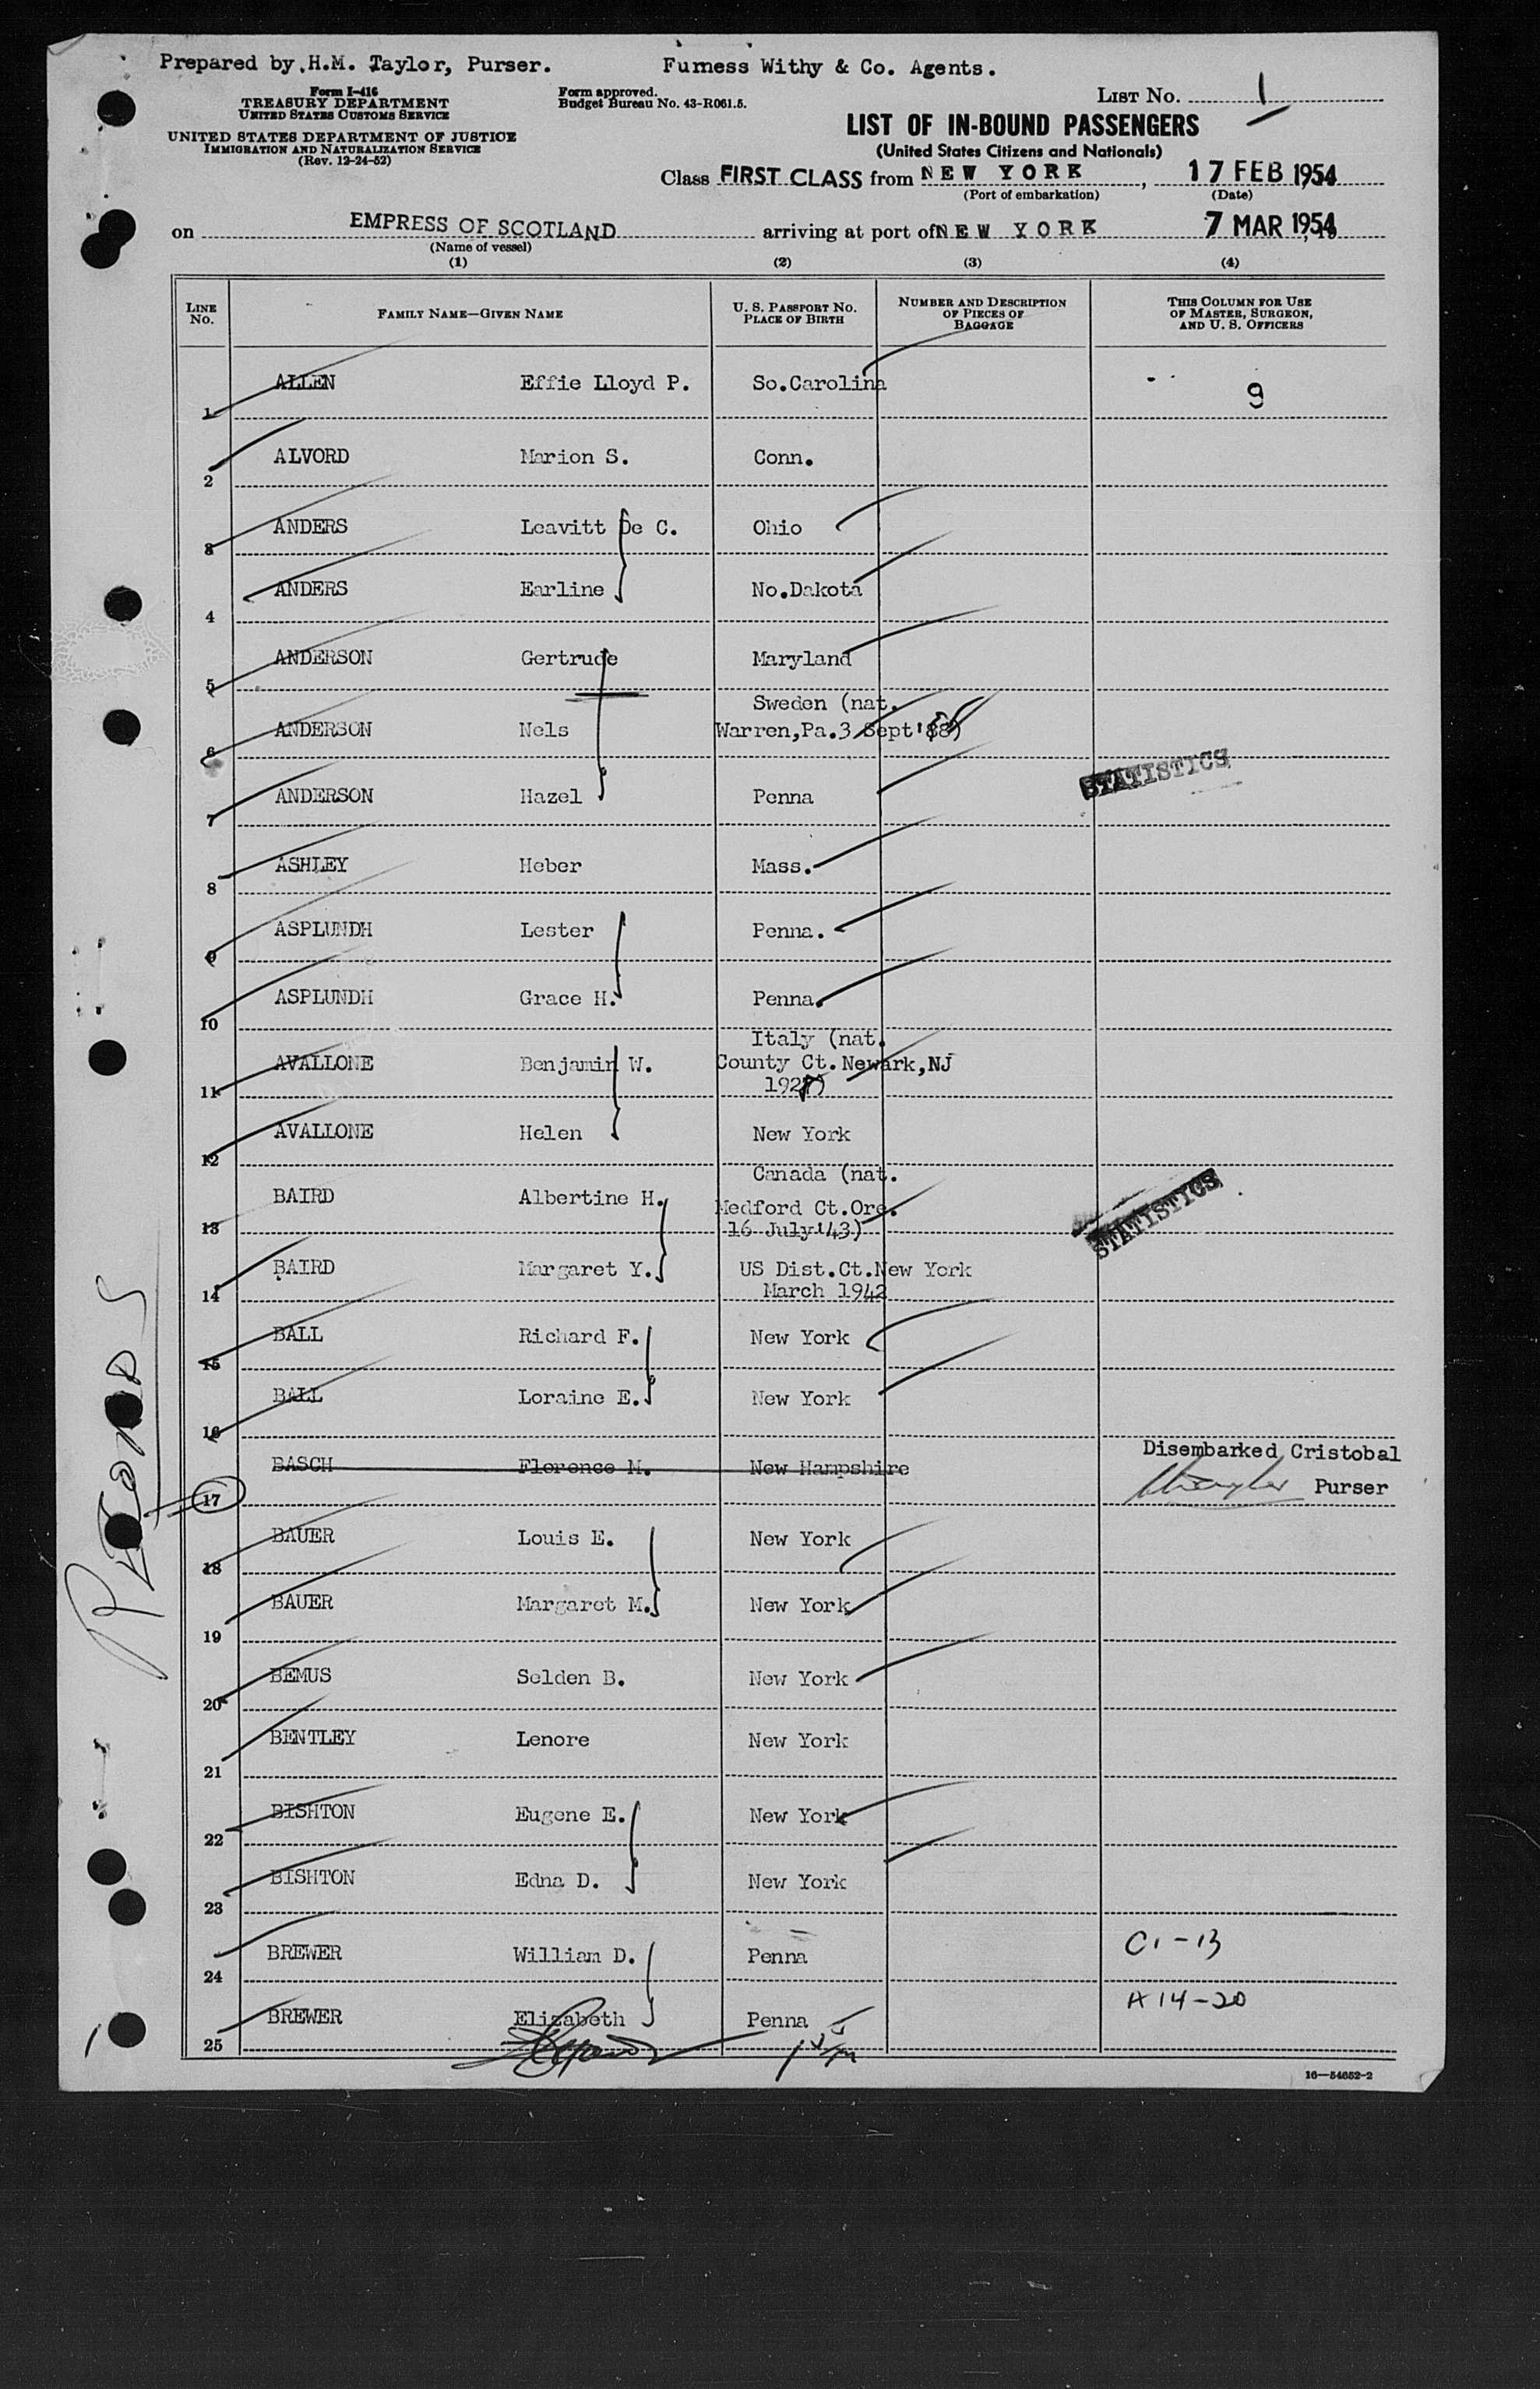 Prepared by H.M. Taylor, Purser. Furness Withy & Co. Agents.
Form I-416
TREASURY DEPARTMENT
UNITED STATES CUSTOMS SERVICE
UNITED STATES DEPARTMENT OF JUSTICE
IMMIGRATION AND NATURALIZATION SERVICE
(Rev. 12-24-52)
Form approved.
Budget Bureau No. 43-R061.5.
LIST NO. 1
LIST OF IN-BOUND PASSENGERS
(United States Citizens and Nationals)
Class FIRST CLASS from NEW YORK, 17 FEB 1954
(Port of embarkation) (Date)
on EMPRESS OF SCOTLAND arriving at port of NEW YORK 7 MAR 1954
(Name of vessel)
(1) (2) (3) (4)
LINE NO. FAMILY NAME—GIVEN NAME U. S. PASSPORT NO. PLACE OF BIRTH NUMBER AND DESCRIPTION OF PIECES OF BAGGAGE THIS COLUMN FOR USE OF MASTER, SURGEON, AND U. S. OFFICERS
1 ALLEN Effie Lloyd P. So.Carolina 9
2 ALVORD Marion S. Conn.
3 ANDERS Leavitt De C. Ohio
4 ANDERS Earline No.Dakota
5 ANDERSON Gertrude Maryland
6 ANDERSON Nels Sweden (nat.
Warren,Pa.3 Sept'88)
STATISTICS
7 ANDERSON Hazel Penna
8 ASHLEY Heber Mass.
9 ASPLUNDH Lester Penna.
10 ASPLUNDH Grace H. Penna.
11 AVALLONE Benjamin W. Italy (nat.
County Ct. Newark,NJ
192)
12 AVALLONE Helen New York
13 BAIRD Albertine H. Canada (nat.
Medford Ct.Ore.
16 July'43)
STATISTICS
14 BAIRD Margaret Y. US Dist.Ct.New York
March 1942
15 BALL Richard F. New York
16 BALL Loraine E. New York
17 BASCH Florence M. New Hampshire Disembarked Cristobal
Purser
18 BAUER Louis E. New York
19 BAUER Margaret M. New York
20 BEMUS Selden B. New York
21 BENTLEY Lenore New York
22 BISHTON Eugene E. New York
23 BISHTON Edna D. New York
24 BREWER William D. Penna C1-13
25 BREWER Elizabeth Penna A14-20
16—54652-2